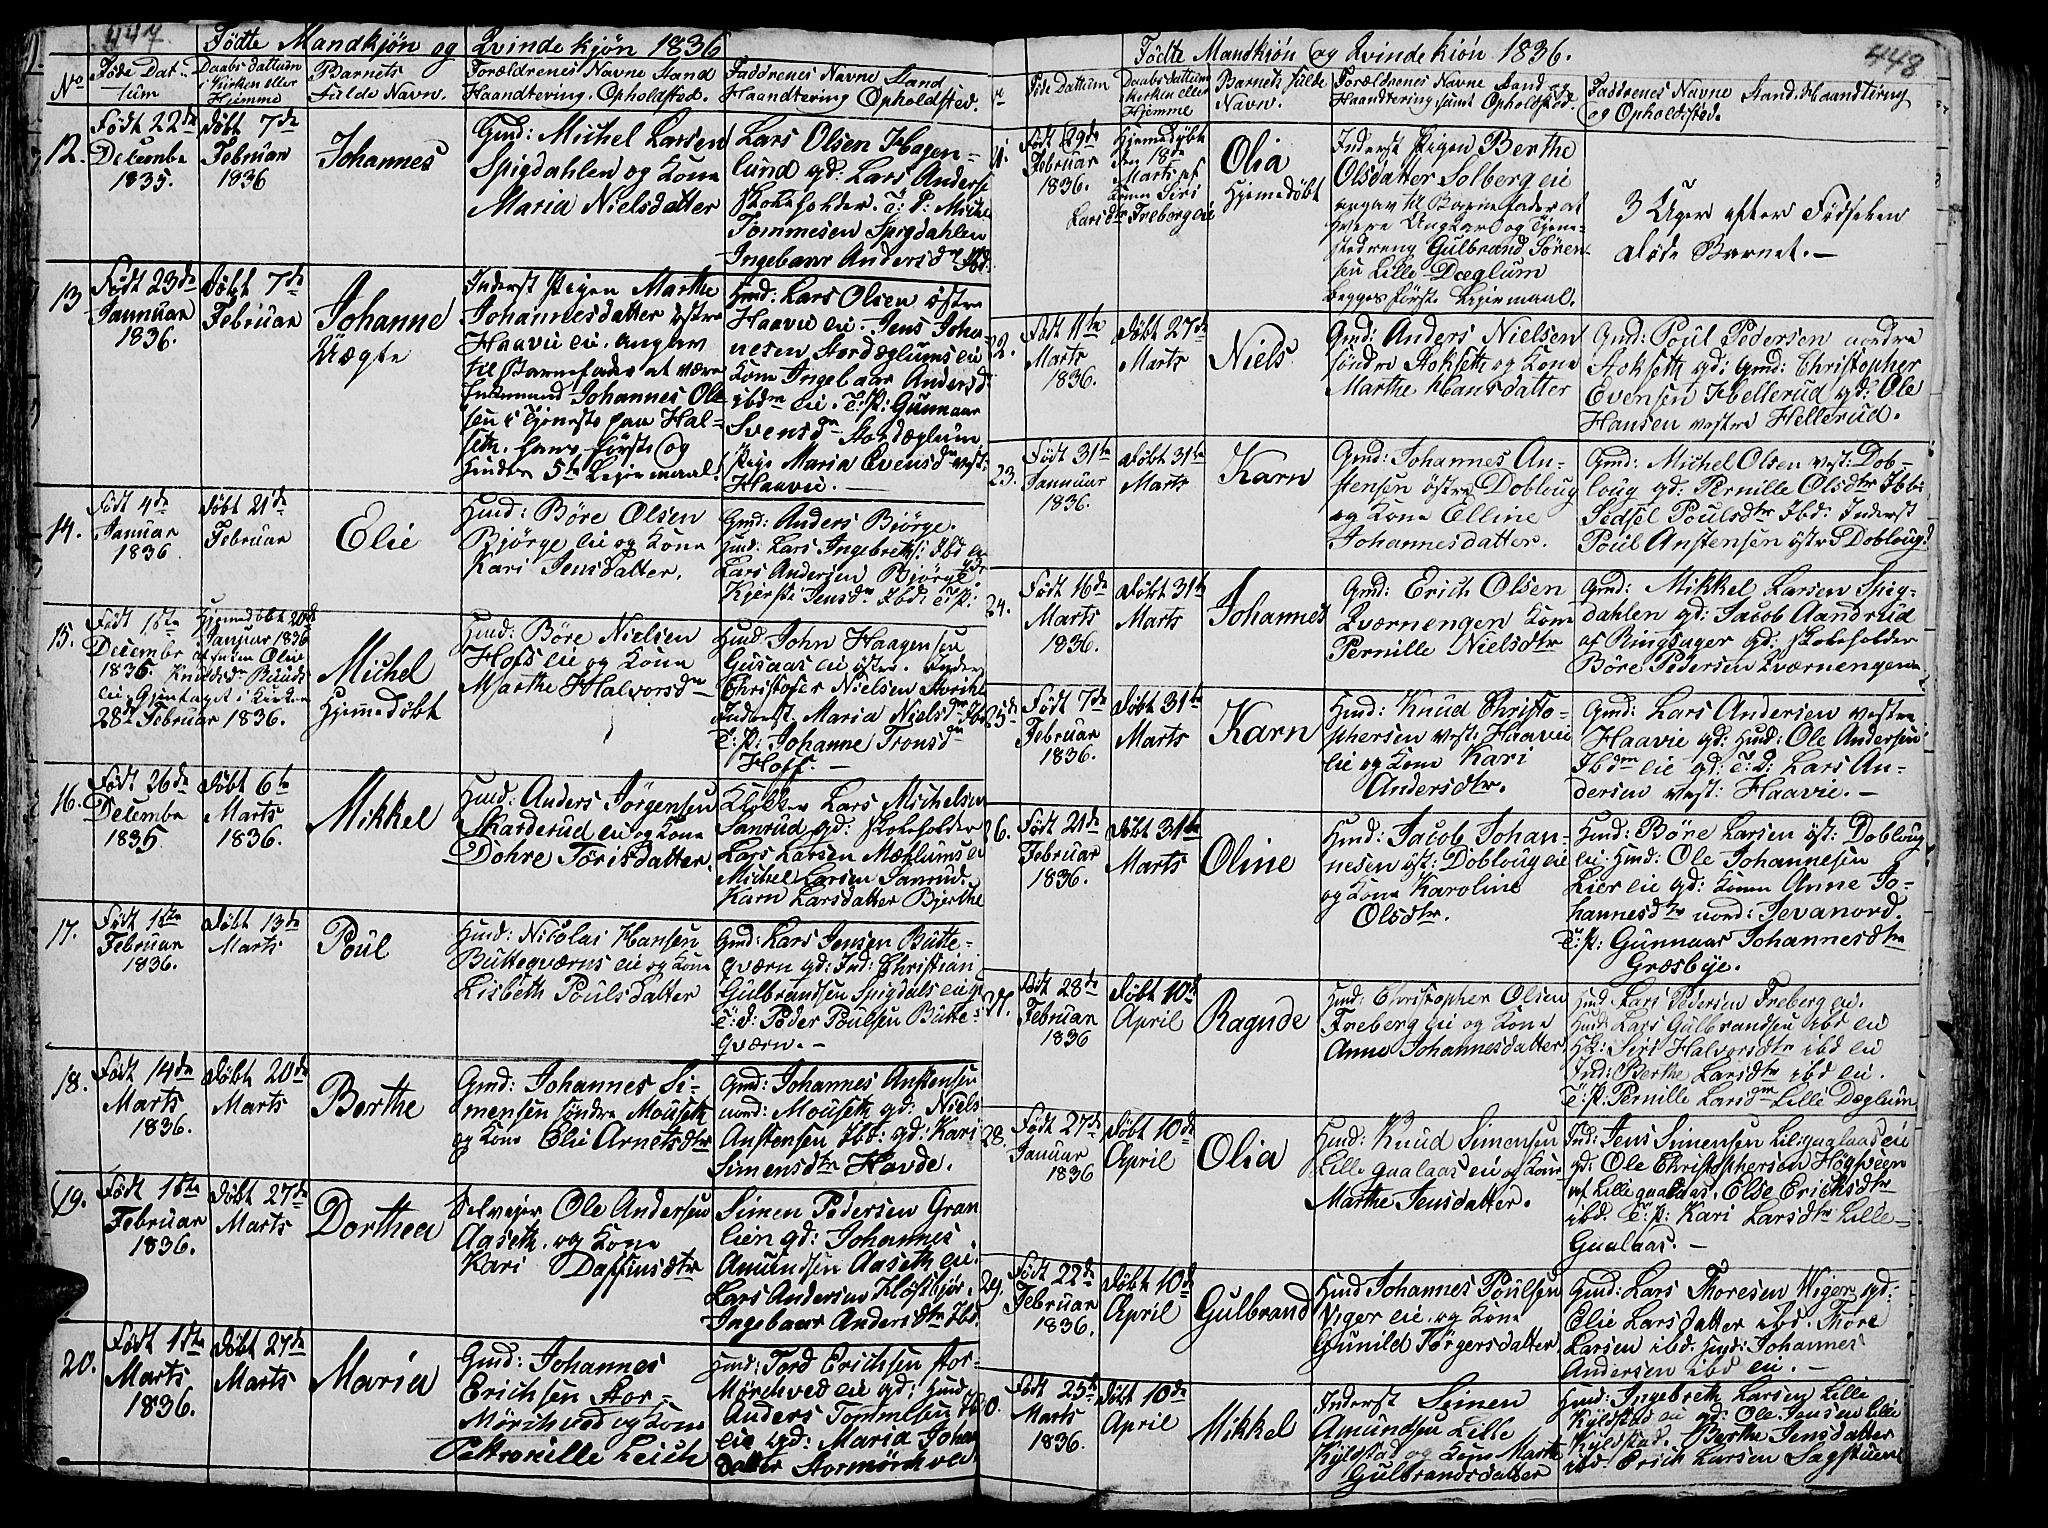 447.
Fødte Mandkjøn og Qvindekjøn 1836
No
Føde Dat-
tum
Daabs dattum
i Kirken eller
Hjemme
Barnets
fulde Navn.
Forældrenes Navne Stand
Haandtering. Opholdsted.
Faddrenes Navne Stand
Haandtering Opholdsted.
12.
Født 22de
Decembr
1835.
Døbt 7de
Februar
1836
Johannes
Gmd: Michel Larsen
Spigdahlen og Kone
Maria Nielsdatter
Lars Olsen Hagen-
lund gd: Lars Anders
Skoleholder. T: D: Michel
Tommesen Spigdahlen
Ingebaar Andersdr Ibd:
13
Født 23de
Januar
1836.
Døbt 7de
Februar
Johanne
Uægte
Inderst Pigen Marthe
Johannesdatter østre
Haavie eie, angav
til Barnefader at være
Johannes Ol-
sen i Tjeneste paa Hal-
seth. hans første og
hindes 5te Leiermaal.
Hmd: Lars Olsen østre
Haavie eie. Jens Joha-
nesen Stordæglums eie
Kone Ingebaar Andersd
ibdm eie. T: P: Gunnaar
Svensdr Stordæglum
Pige Maria Evensdr vest:
Haavie. —
14.
Født 4de
Januar
1836.
Døbt 21de
Februar
Elie
Hmd: Böre Olsen
Bjørge eie og Kone
Kari Jensdatter.
Gmd: Anders Bjørge.
Hmd: Lars Ingebretss: Ibd eie
Lars Andersen Bjørge
Kjersti Jensdr Ibd: T: P:
15.
Født 1ste
Decembr
1835.
Hjemedøbt 20de
Januar 1836
Knudsdr
eie. Gjentaget i Kirken
28de Februar 1836.
Michel
Hjemedøbt
Hmd: Böre Nielsen
Hofs eie og Kone
Marthe Halvorsdr
Hmd John Haagensen
Gusaas eie østre.
Christofer Nielsen
Inderst. Maria Nielsdr Ibd
T: P: Johanne Tronsdr
Hoff. —
16.
Født 26de
Decembr
1835.
Døbt 6te
Marts
1836.
Mikkel
Hmd: Anders Jörgensen
Skarderud eie og Kone
Dohre Torisdatter.
Klokker Lars Michelsen
Sanrud gd: Skoleholder
Lars Larsen Mæhlums ei
Michel Larsen Sanrud.
Karn Larsdatter Bjerthe
17.
Født 1ste
Februar
1836.
Døbt 13de
Marts
Poul
Hmd: Nicolai Hansen
Büttegværns eie og Kone
Lisbeth Poulsdatter
Gmd: Lars Jensen Bütte-
qværn gd: Ind: Christian
Gulbrandsen Spigdals eie gd
T: d: Peder Poulsen Bütte-
qværn. —
18.
Født 14de
Marts
1836.
Døbt 20de
Marts
Berthe
Gmd: Johannes Si-
mensen søndre Mouseth
og Kone Elie Arnetsdtr
Gmd: Johannes Anstensen
nord: Mouseth gd: Niels
Anstensen Ibd: gd: Kari
Simensdtr Hovde.
19.
Født 1ste
Februar
1836.
Døbt 27de
Marts
Dorthea
Selvejer Ole Andersen
Aaseth. og Kone
Kari Daffinsdtr
Simen Pedersen Gran
lien gd: Johannes
Amundsen Aaseth eie.
Lars Andersen Høstbjør.
Ingebaar Andersdtr Ibd.
20.
Født 1ste
Marts
1836.
Døbt 27de
Marts
Maria
Gmd: Johannes
Erichsen Stor-
Mörchved og Kone
Petronille Leich
Hmd: Tord Erichsen Stor-
Mörchved eie gd: Hmd:
Anders Tommesen
eie gd: Maria Johan
datter Stormørchved
448
Fødte Mandkjøn og Qvindekiøn 1836.
Føde Dattum
Daabs dattum
i Kirken eller
Hjemme
Barnets fulde
Navn.
Forældrenes Navne Stand
Haandtering samt Opholdsted.
Faddrenes Navne Stand. Haandtering
og Opholdsted.
21.
Født 29de
Februar
1836.
Hjemedøbt
den 18de
Marts af
Kone Siri
Larsdtr Freberg eie
Olia
Hjemedøbt
Inderst Pigen Berthe
Olsdatter Solberg eie
angav til Barnefader at
være Ungkarl og Tjene-
stedreng Gulbrand Sören-
sen Lille Dæglum
begges første Leiermaal.
3 Uger efter Fødselen
døde Barnet. —
22.
Født 11te
Marts
1836.
Døbt 27de
Marts
Niels
Gmd: Anders Nielsen
søndre Stokseth og Kone
Marthe Hansdatter
Gmd: Poul Pedersen nordre
Stokseth gd: Gmd: Christopher
Evensen Hellerud gd: Ole
Hansen vestre Hellerud.
23.
Født 31te
Januar
1836.
Døbt 31te
Marts
Karn
Gmd: Johannes An-
stensen östre Dobloug
og Kone Elline
Johannesdatter.
Gmd: Michel Olsen vest: Dob-
loug gd: Pernille Olsdtr Ibd:
Sedsel Poulsdtr Ibd: Inderst
Poul Anstensen östre Doblougd
24.
Født 16de
Marts
1836.
Døbt 31te
Marts
Johannes
Gmd: Erich Olsen
Qværnengen Kone
Pernille Nielsdtr
Gmd: Mikkel Larsen Spig-
dahlen gd: Jacob Aandrud
af Ringsager gd: Skoleholder
Böre Pedersen Qværnengen
25.
Født 7de
Februar
1836.
Døbt 31te
Marts
Karn
Hmd: Knud Christo-
phersen vest: Haavie
eie og Kone Kari
Andersdtr.
Gmd: Lars Andersen vestre
Haavie gd: Hmd: Ole Andersen
Ibdm eie gd: T: D: Lars An-
dersen vest: Haavie. —
26.
Født 21de
Februar
1836.
Døbt 31te
Marts
Oline
Hmd: Jacob Johan-
nesen øst: Doblougeie
og Kone Karoline
Olsdtr.
Hmd: Böre Larsen øst: Doblougg
eie. Hmd: Ole Johannesen
Lier eie gd: Konen Anne Jo-
hannesdtr nord: Jevanord.
T: P: Gunnaar Johannesdtr
Græsbye.
27.
Født 28de
Februar
1836
Døbt 10de
April
Ragnde
Hmd: Christopher Olsen
Freberg eie og Kone
Anne Johannesdatter
Hmd Lars Pedersen Freberg eie.
Hmd: Lars Gulbrandsen ibd eie
HK: Siri Halvorsdtr ibd eie
Ind: Berthe Larsdtr ibd eie.
T: P: Pernille Larsdtr Lille Dæglum
28.
Født 27de
Januar
1836
Døbt 10de
April
Olia
Hmd: Knud Simensen
Lille gaalaas eie og Kone
Marthe Jensdatter.
Ind: Jens Simensen Lil: gaalaas eie
gd: Ole Christophersen Høgsveen
af Lille gaalaas. Else Ericksdtr
ibd. T: P: Kari Larsdtr Lille-
Gaalaas. —
29.
Født 22de
Februar
1836.
Døbt 10de
April
Gulbrand
Hmd Johannes Poulsen
Viger eie. og Kone
Gunild Törgersdatter.
Gmd: Lars Thoresen Wiger gd:
Elie Larsdatter ibd. Thore
Larsen ibd. Hmd: Johannes
Andersen ibd eie. —
30.
Født 25de
Marts
1836.
Døbt 10de
April
Mikkel
Inderst Simen
Amundsen Lille
Kyldstad og Kone Marthe
Gulbrandsdatter
Hmd: Ingebreth Larsen Lille
Kyldstad eie gd: Ole Jensen Lille
Kyldstad. Berthe Jensdatter
ibd. Erich Larsen Sagstuen